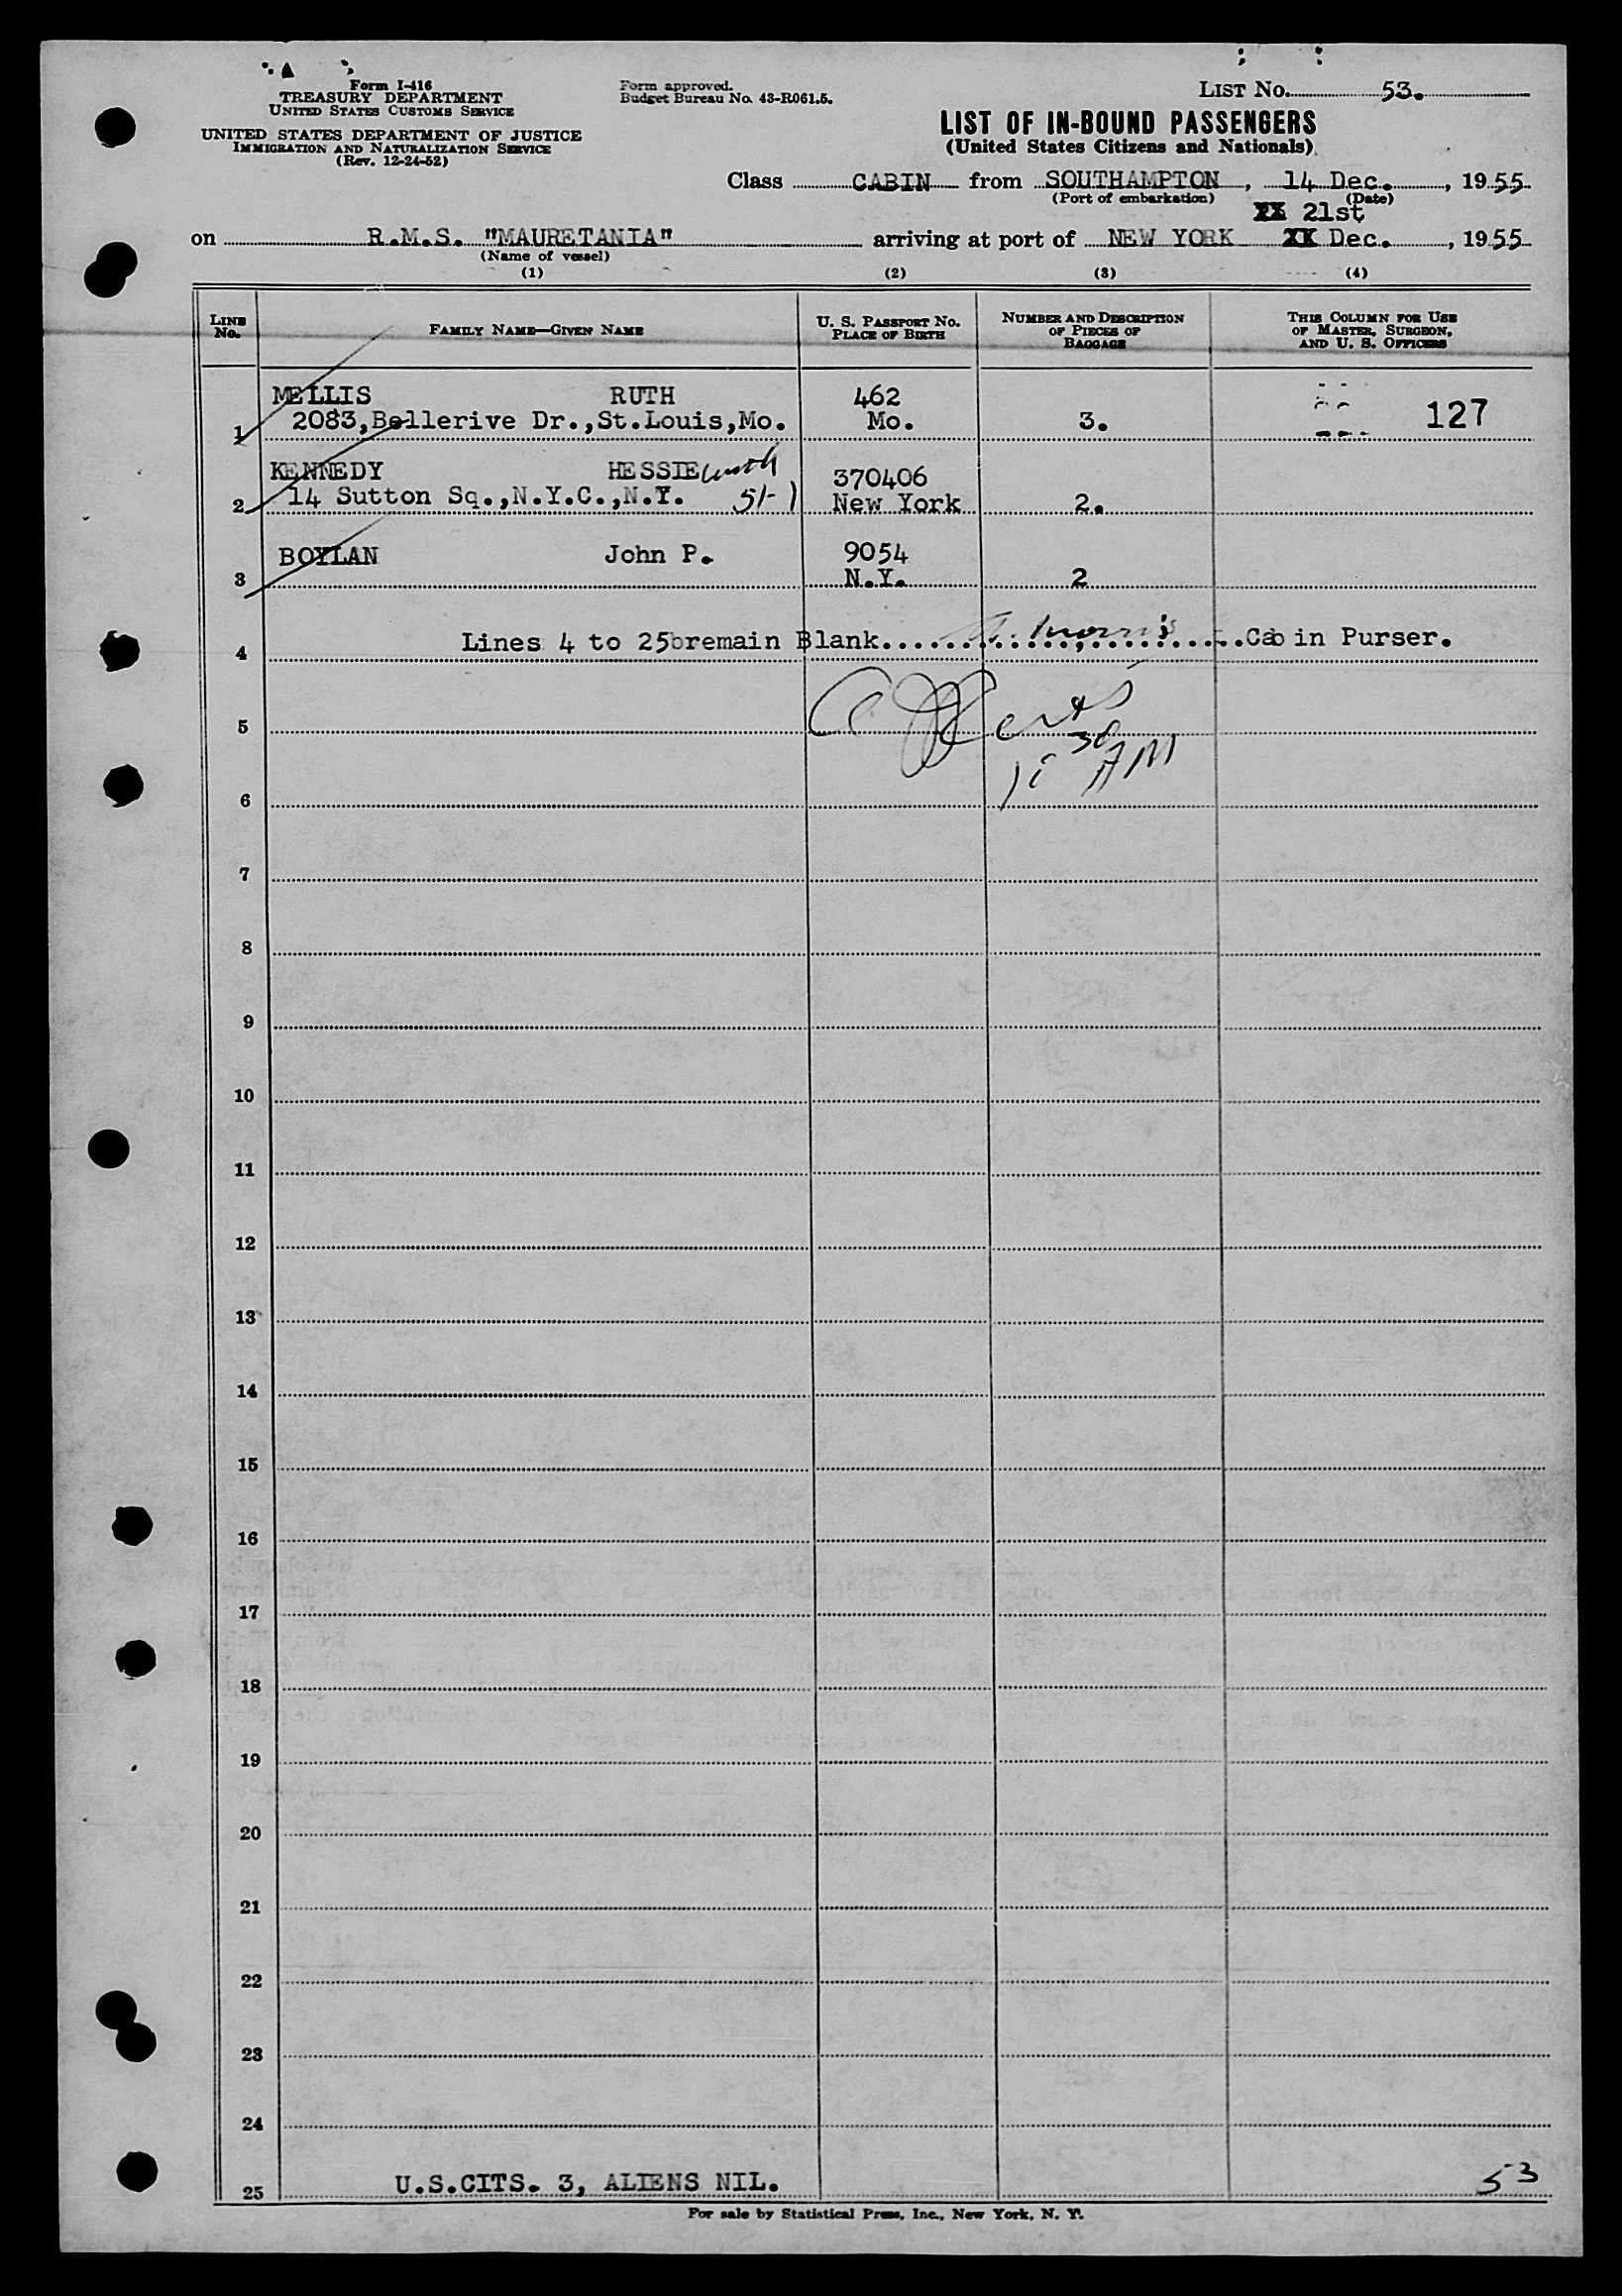 Form I-416
TREASURY DEPARTMENT
UNITED STATES CUSTOMS SERVICE
UNITED STATES DEPARTMENT OF JUSTICE
IMMIGRATION AND NATURALIZATION SERVICE
(Rev. 12-24-52)
Form approved.
Budget Bureau No. 43-R061.5.
LIST No. 53.
LIST OF IN-BOUND PASSENGERS
(United States Citizens and Nationals)
Class CABIN from SOUTHAMPTON, 14 Dec., 1955
(Port of embarkation) (Date)
21st
on R.M.S. "MAURETANIA" arriving at port of NEW YORK Dec., 1955
(Name of vessel)
(1) (2) (3) (4)
LINE No. FAMILY NAME—GIVEN NAME U. S. PASSPORT No. PLACE OF BIRTH NUMBER AND DESCRIPTION OF PIECES OF BAGGAGE THIS COLUMN FOR USE OF MASTER, SURGEON, AND U. S. OFFICERS
MELLIS RUTH 462
1 2083,Bellerive Dr.,St.Louis,Mo. Mo. 3. 127
KENNEDY HESSIE with 370406
2 14 Sutton Sq.,N.Y.C.,N.Y. 51-1 New York 2.
BOYLAN John P. 9054
3 N.Y. 2
4 Lines 4 to 25 remain Blank. Morris Cab in Purser.
5
30
6 AM
7
8
9
10
11
12
13
14
15
16
17
18
19
20
21
22
23
24
25 U.S.CITS. 3, ALIENS NIL. 53
For sale by Statistical Press, Inc., New York, N. Y.